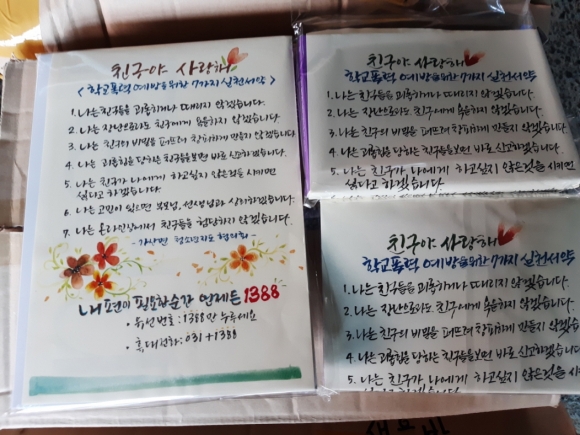 친구야 사랑해
<학교폭력 예방을 위한 7가지 실천서약>
1. 나는 친구들을 괴롭히거나 때리지 않겠습니다.
2. 나는 장난으로라도 친구에게 욕을하지 않겠습니다.
3. 나는 친구의 비밀을 퍼뜨려 창피하게 만들지 않겠습니다.
4. 나는 괴롭힘을 당하는 친구들을보면 바로 신고하겠습니다.
5. 나는 친구가 나에게 하고싶지 않은것을 시키면
싫다고 하겠습니다.
6. 나는 고민이 있으면 부모님, 선생님과 상의하겠습니다.
7. 나는 온라인상에서 친구들을 험담하지 않겠습니다.
- 가산면 청소년지도 협의회 -
내 편이 필요한순간 언제든 1388
• 유선번호 : 1388만 누루세요
• 휴대전화 : 031 + 1388
친구야 사랑해
학교폭력 예방을위한 7가지 실천서약
1. 나는 친구들을 괴롭히거나 때리지 않겠습니다.
2. 나는 장난으로라도 친구에게 욕을하지 않겠습니다.
3. 나는 친구의 비밀을 퍼뜨려 창피하게 만들지 않겠습니다.
4. 나는 괴롭힘을 당하는 친구들을보면 바로 신고하겠습니다.
5. 나는 친구가 나에게 하고싶지 않은것을 시키면
싫다고 하겠습니다.
친구야 사랑해
학교폭력 예방을위한 7가지 실천서약
1. 나는 친구들을 괴롭히거나 때리지 않겠습니다.
2. 나는 장난으로라도 친구에게 욕을하지 않겠습니다.
3. 나는 친구의 비밀을 퍼뜨려 창피하게 만들지 않겠습니다.
4. 나는 괴롭힘을 당하는 친구들을보면 바로 신고하겠습니다.
5. 나는 친구가 나에게 하고싶지 않은것을 시